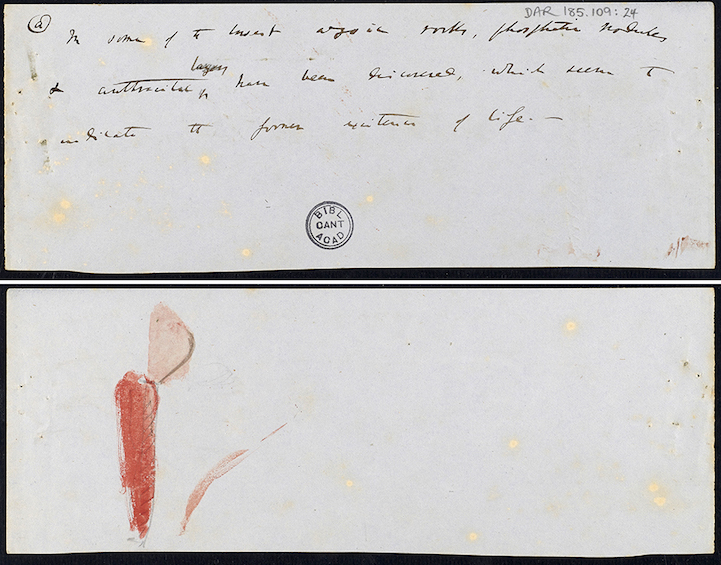 DAR 185.109:24
(a)
In some of the lowest azoic rocks, phosphatic nodules
layers
& anthracitic have been discovered, which seem to
indicate the former existence of life. —
BIBL
CANT
ACAD